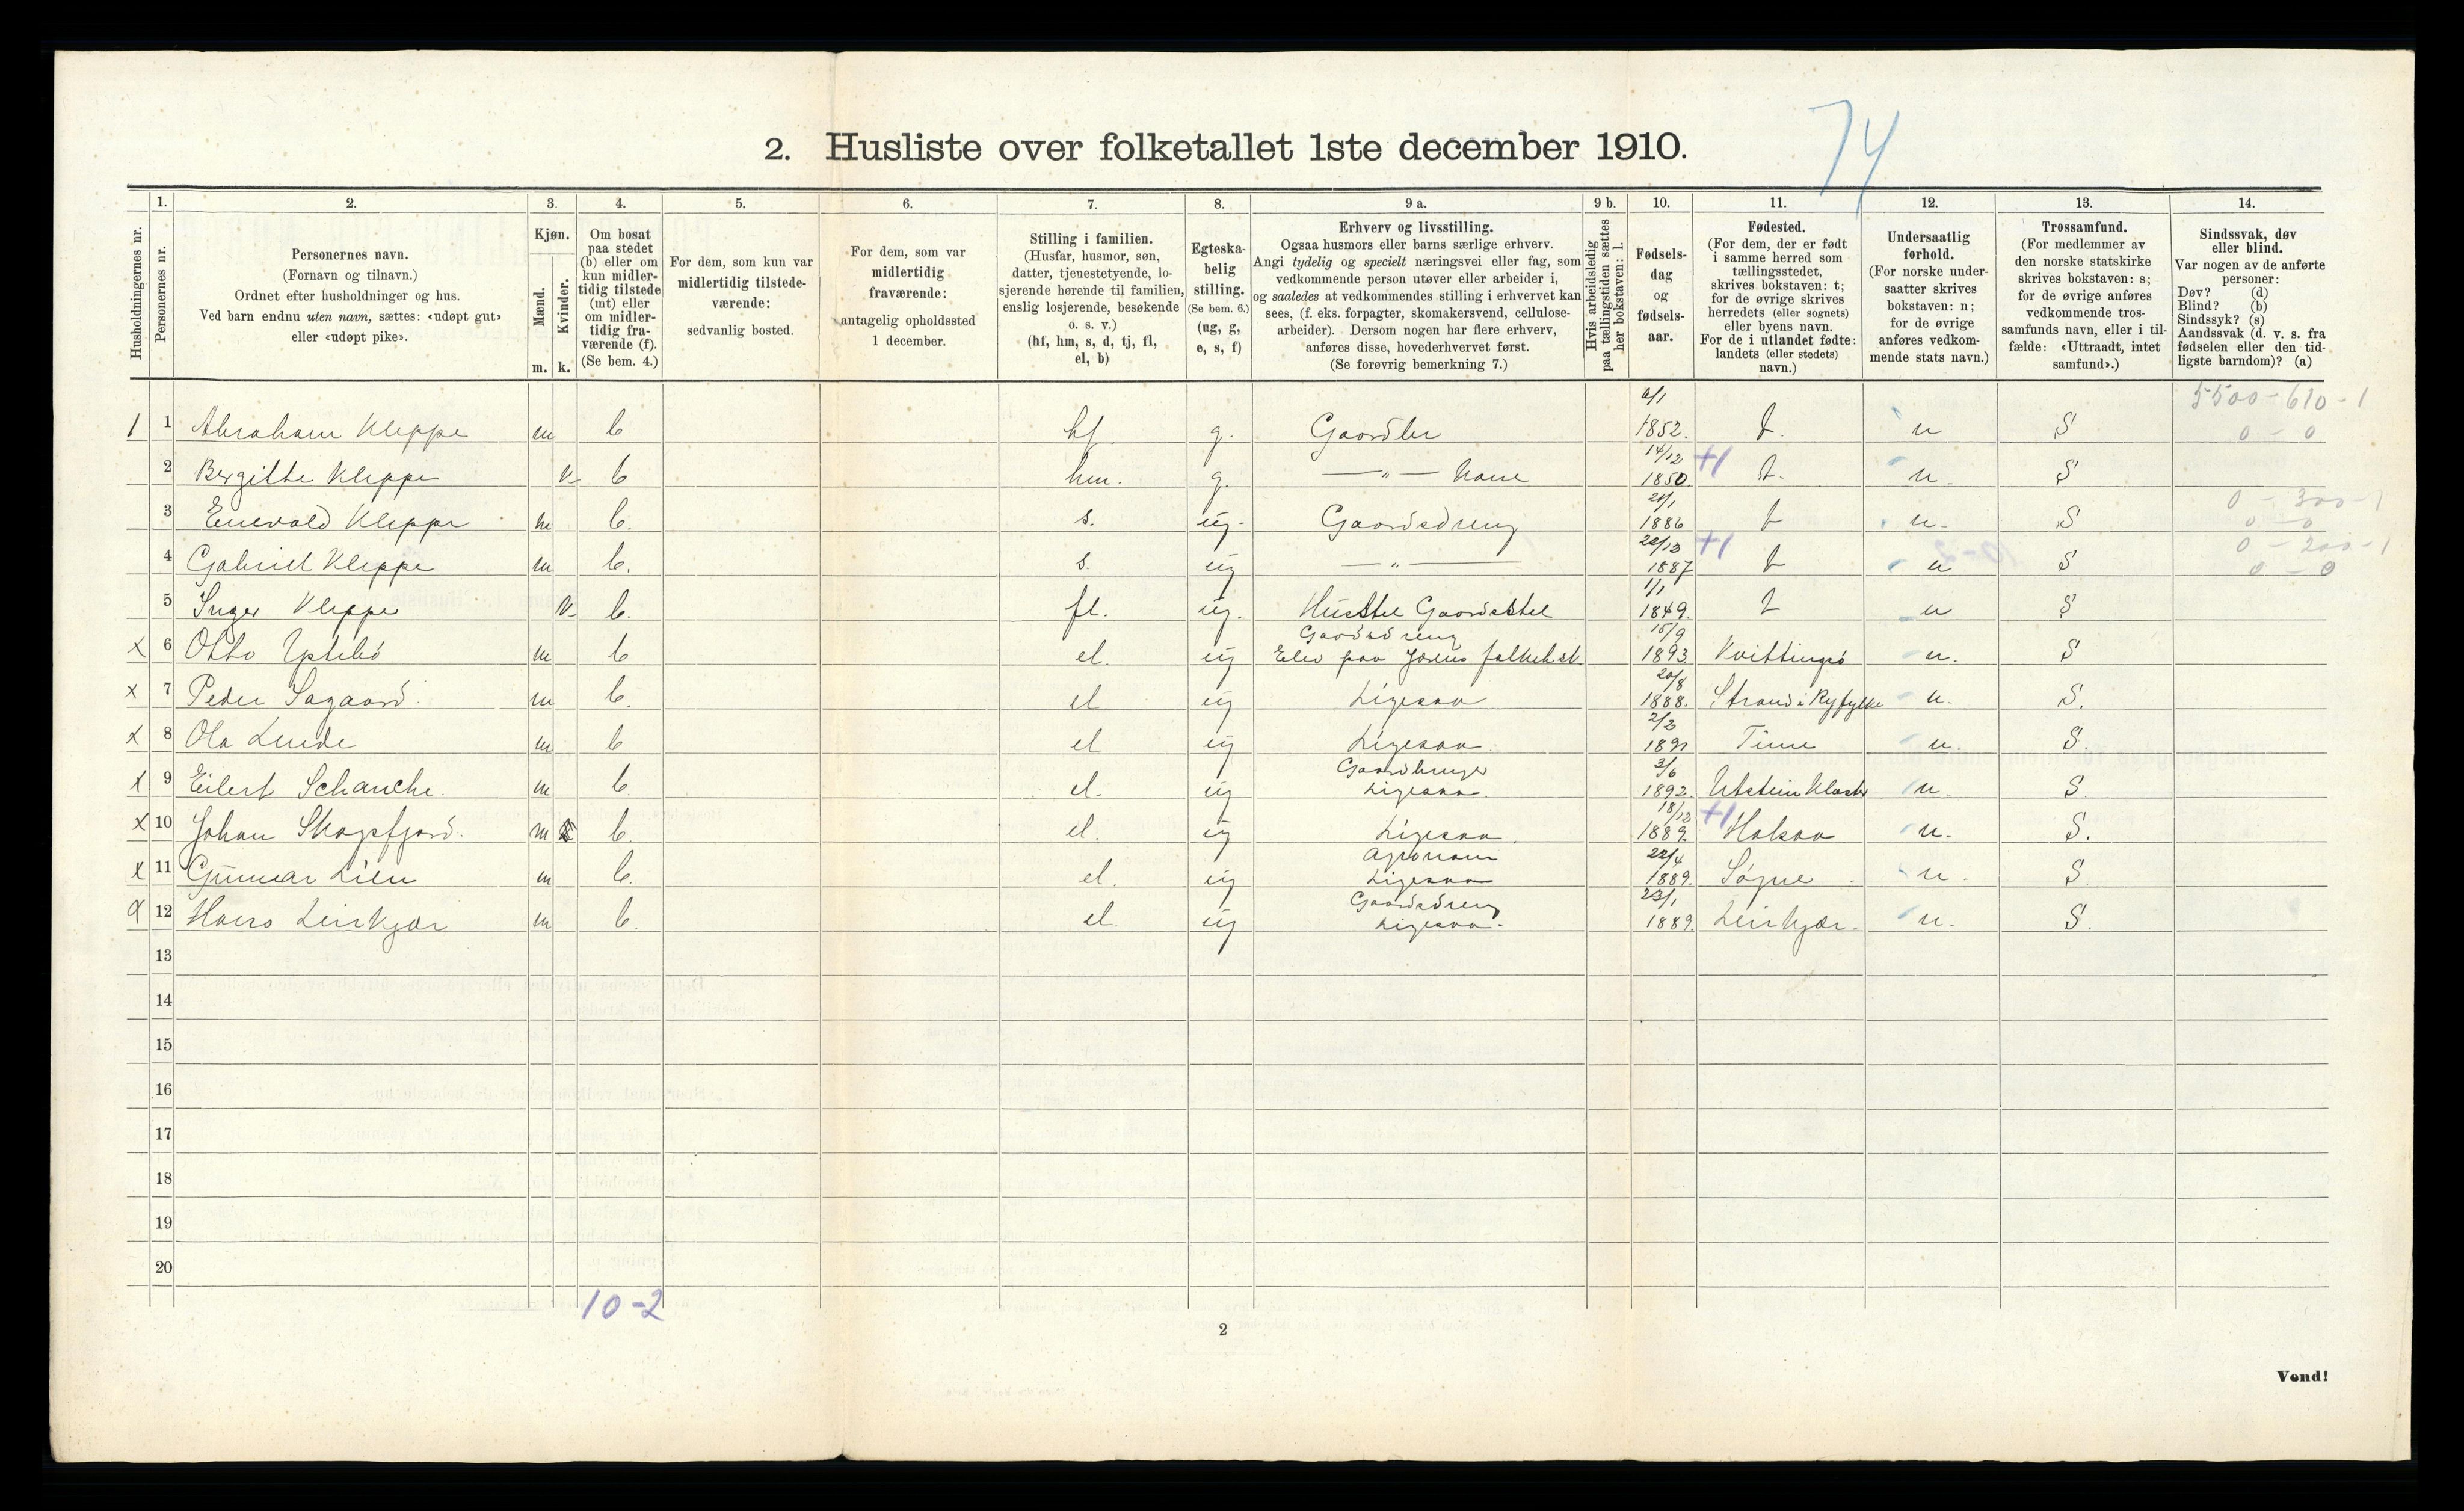 74
2. Husliste over folketallet 1ste december 1910.
Husholdningernes nr.
1. Personernes nr.
2. Personernes navn.
(Fornavn og tilnavn.)
Ordnet efter husholdninger og hus.
Ved barn endnu uten navn, sættes: «udøpt gut»
eller «udøpt pike».
3. Kjøn.
Mænd. m.
Kvinder. k.
4. Om bosat
paa stedet
(b) eller om
kun midler-
tidig tilstede
(mt) eller
om midler-
tidig fra-
værende (f).
(Se bem. 4.)
5. For dem, som kun var
midlertidig tilstede-
værende:
sedvanlig bosted.
6. For dem, som var
midlertidig
fraværende:
antagelig opholdssted
1 december.
7. Stilling i familien.
(Husfar, husmor, søn,
datter, tjenestetyende, lo-
sjerende hørende til familien,
enslig losjerende, besøkende
o. s. v.)
(hf, hm, s, d, tj, fl,
el, b)
8. Egteska-
belig
stilling.
(Se bem. 6.)
(ug, g,
e, s, f)
9 a. Erhverv og livsstilling.
Ogsaa husmors eller barns særlige erhverv.
Angi tydelig og specielt næringsvei eller fag, som
vedkommende person utøver eller arbeider i,
og saaledes at vedkommendes stilling i erhvervet kan
sees, (f. eks. forpagter, skomakersvend, cellulose-
arbeider). Dersom nogen har flere erhverv,
anføres disse, hovederhvervet først.
(Se forøvrig bemerkning 7.)
9 b. Hvis arbeidsledig
paa tællingstiden sættes
her bokstaven: l.
10. Fødsels-
dag
og
fødsels-
aar.
11. Fødested.
(For dem, der er født
i samme herred som
tællingsstedet,
skrives bokstaven: t;
for de øvrige skrives
herredets (eller sognets)
eller byens navn.
For de i utlandet fødte:
landets (eller stedets)
navn.)
12. Undersaatlig
forhold.
(For norske under-
saatter skrives
bokstaven: n;
for de øvrige
anføres vedkom-
mende stats navn.)
13. Trossamfund.
(For medlemmer av
den norske statskirke
skrives bokstaven: s;
for de øvrige anføres
vedkommende tros-
samfunds navn, eller i til-
fælde: «Uttraadt, intet
samfund».)
14. Sindssvak, døv
eller blind.
Var nogen av de anførte
personer:
Døv? (d)
Blind? (b)
Sindssyk? (s)
Aandssvak (d. v. s. fra
fødselen eller den tid-
ligste barndom)? (a)
5500 - 610 - 1
1 1 Abraham Kleppe m b hf g. 6/1 1852. t. n S 0 - 0
2 Bergitte Kleppe k b hm. g. — " — kone 14/12 1850. +1 t. n. S
0 - 300 - 1
3 Enevald Kleppe m b. s. ug. Gaardsdreng 1886 t n. S 0 - 0
0 - 200 - 1
4 Gabriel Kleppe m b. s. ug — " — 1887 +1 t n S 0 - 0
5 Inger Kleppe k b. fl. ug. 1/1 1849. t n S
Gaardsdreng
x 6 Otto m b el. ug Elev paa Jærens folkehsk 15/9 1893. Kvittingsø n. S
x 7 Peder m b. el ug Ligesaa 20/8 1888. Strand i Ryfylke n. S.
x 8 Ola Lende m b el ug Ligesaa Time n. S.
x 9 Eilert Schanche. m b. el. ug Ligesaa. 3/6 1892. Utstein Kloster n. S.
x 10 Johan Skogsfjord. m b. el. ug Ligesaa 18/12 1889. +1 n. S.
Agronom
x 11 Gunnar Lien m b. el. ug Ligesaa 22/4 1889. Søgne n. S.
Gaardsdreng
12 Leirkjær m b. el. ug Ligesaa. 23/1 1889. Leirkjær. n. S.
13
14
15
16
17
18
19
20
10-2
2
Vend!